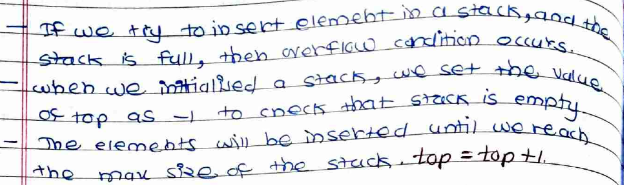 - If we try to insert element in a stack, and the
stack is full, then overflow condition occurs.
- when we initialised a stack, we set the value
of top as -1 to check that stack is empty.
- The elements will be inserted until we reach
the max size of the stack. top = top +1.